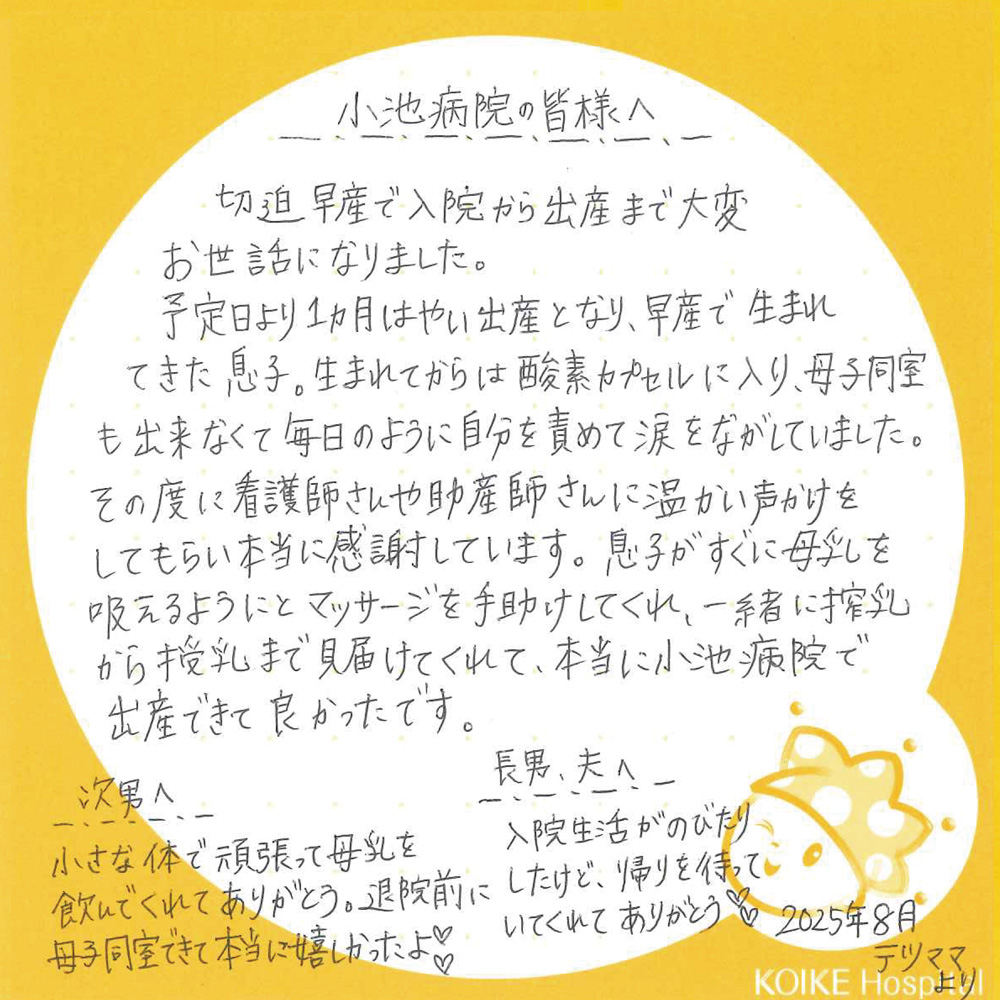 小池病院の皆様へ
切迫早産で入院から出産まで大変
お世話になりました。
予定日より1カ月はやい出産となり、早産で生まれ
てきた息子。生まれてからは酸素カプセルに入り、母子同室
も出来なくて毎日のように自分を責めて涙をながしていました。
その度に看護師さんや助産師さんに温かい声かけを
してもらい本当に感謝しています。息子がすぐに母乳を
吸えるようにとマッサージを手助けしてくれ、一緒に搾乳
から授乳まで見届けてくれて、本当に小池病院で
出産できて良かったです。
次男へ
小さな体で頑張って母乳を
飲んでくれてありがとう。退院前に
母子同室できて本当に嬉しかったよ♡♡
長男、夫へ
入院生活がのびたり
したけど、帰りを待って
いてくれてありがとう♡♡
2025年8月
テツママ
より
KOIKE Hospital